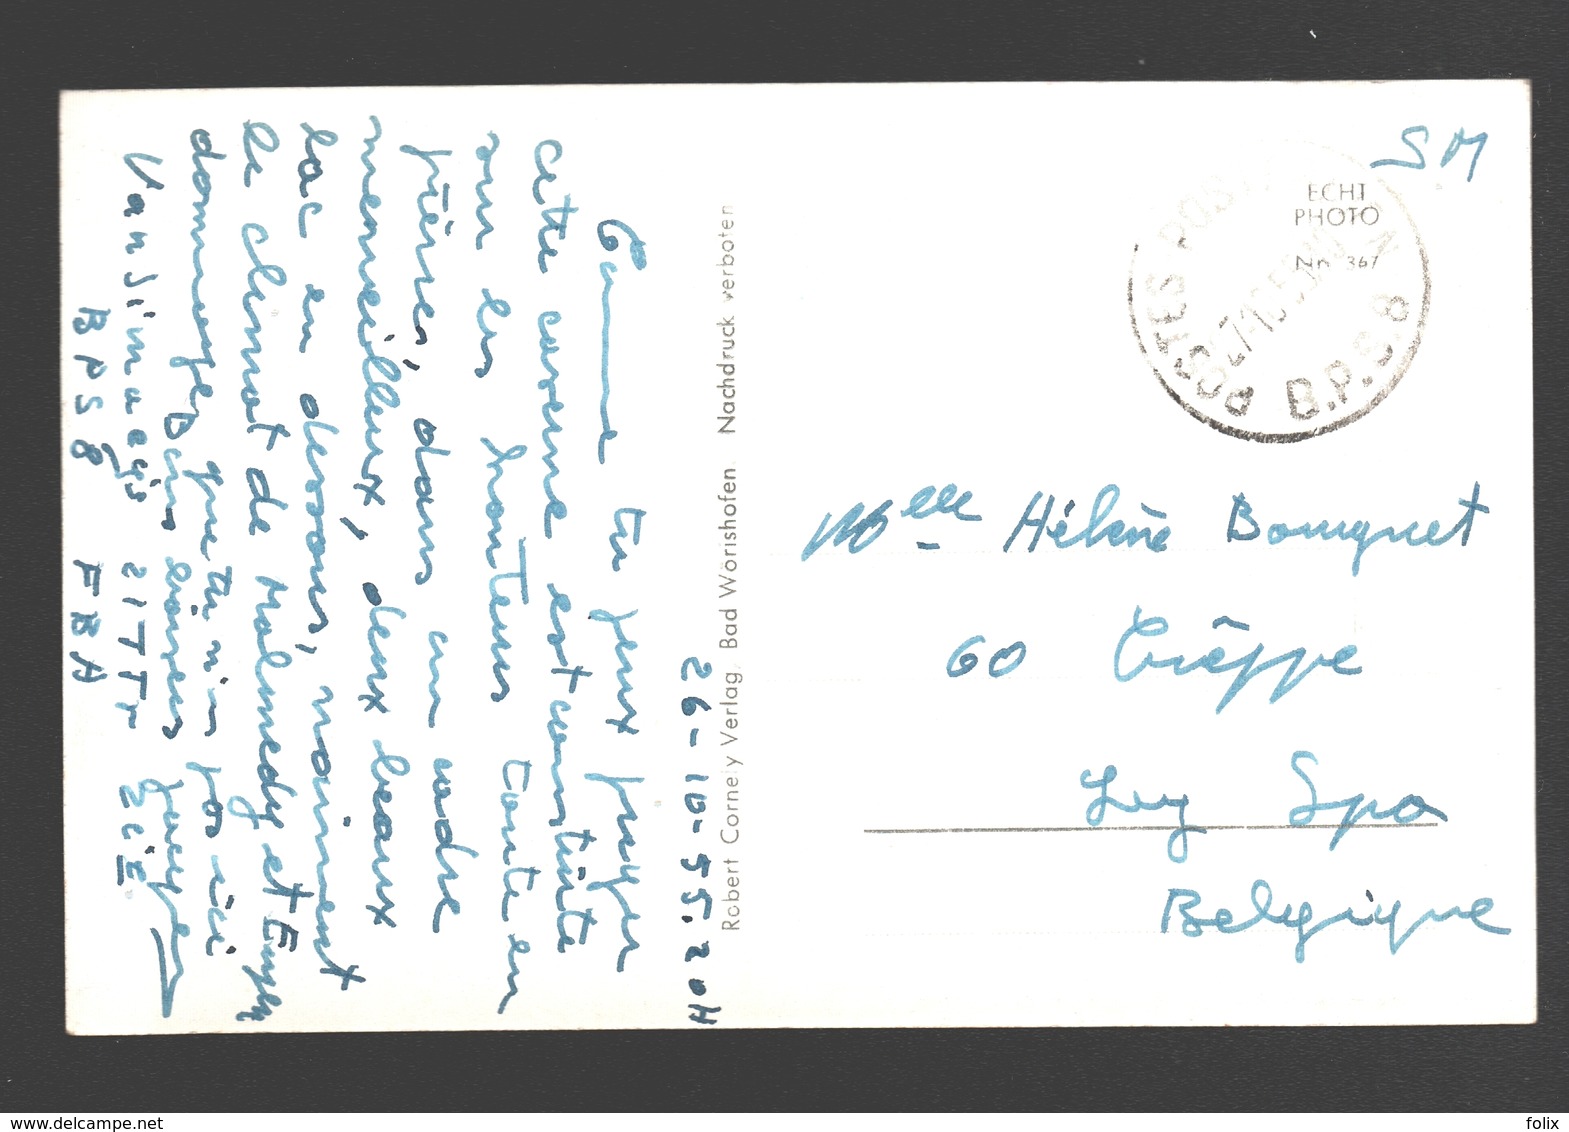 26-10-55. 20H
Comme tu peux juger
cette caserne est construite
sur les hauteurs toute en
pierres, dans un cadre
merveilleux, deux beaux
lac en dessous, vraiment
le climat de Malmedy et
dommage que tu n'es pas ici
Bons baisers
Vansimaeys 21TTr 2CIE
BPS8 FBA
Robert Cornely Verlag, Bad Wörishofen. Nachdruck verboten
SM
ECHT
PHOTO
Nr. 367
POSTES POS
27-10-55
B.P.S.8
Melle Hélène Bouquet
60 Crèppe
Lez Spa
Belgique
folix